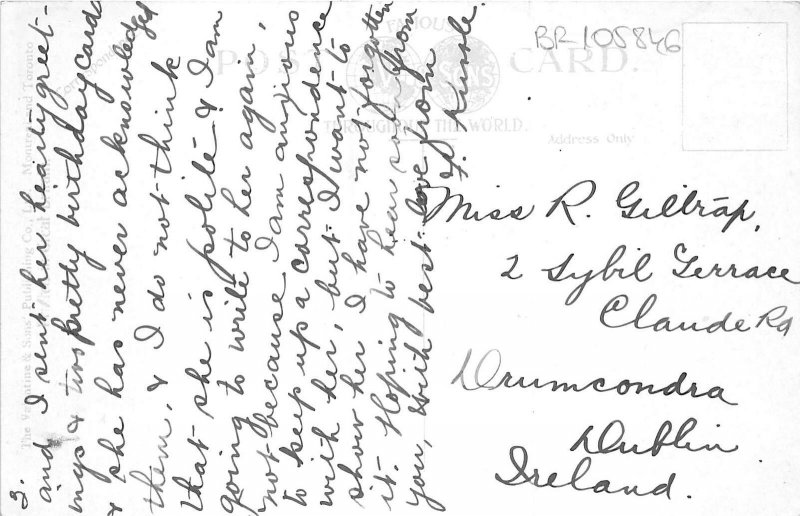 3.
and I sent her hearty greet-
ings & two pretty birthday cards
& she has never acknowledged
them, & I do not think
that she is polite & I am
going to write to her again,
not because I am anxious
to keep up a correspondence
with her, but I want to
show her I have not forgotten
it. Hoping to hear soon from
you, with best love from
FAMOUS
POST CARD.
THROUGHOUT THE WORLD.
Address Only
BR-105846
Miss R. Giltrap,
2 Sybil Terrace
Claude Rd
Drumcondra
Dublin
Ireland.
The Valentine & Sons' Publishing Co., Ltd., Montreal and Toronto